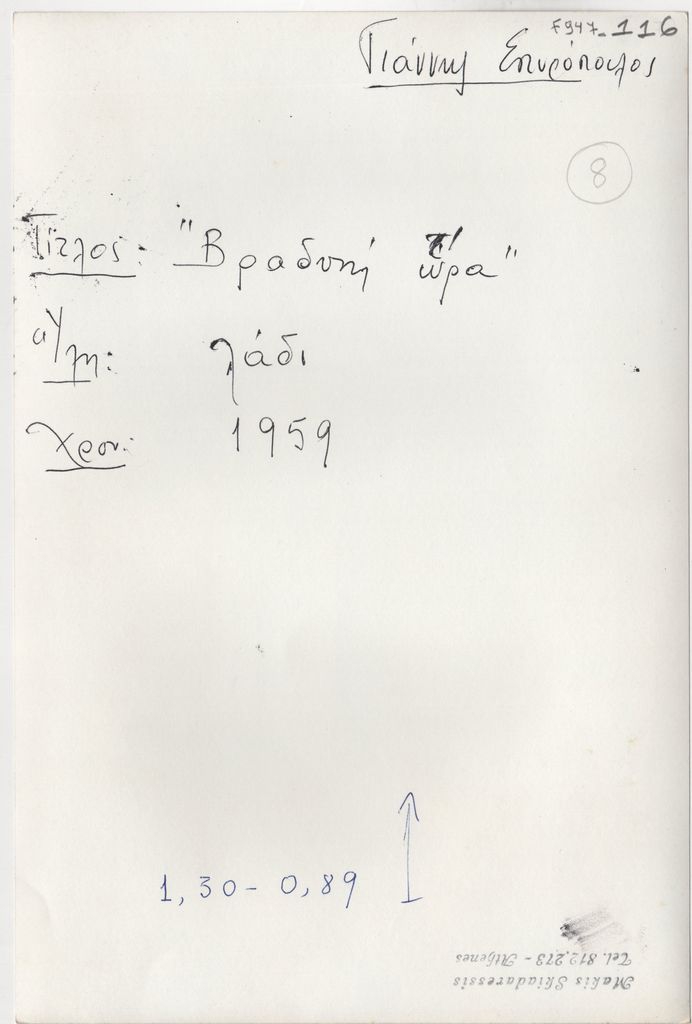 F947-116
Γιάννης Σπυρόπουλος
8
Τίτλος: "Βραδυνή ώρα"
α/λη: λάδι
Χρον: 1959
1,30 - 0,89
Makis Skiadaressis
Tel. 812.273 - Athenes